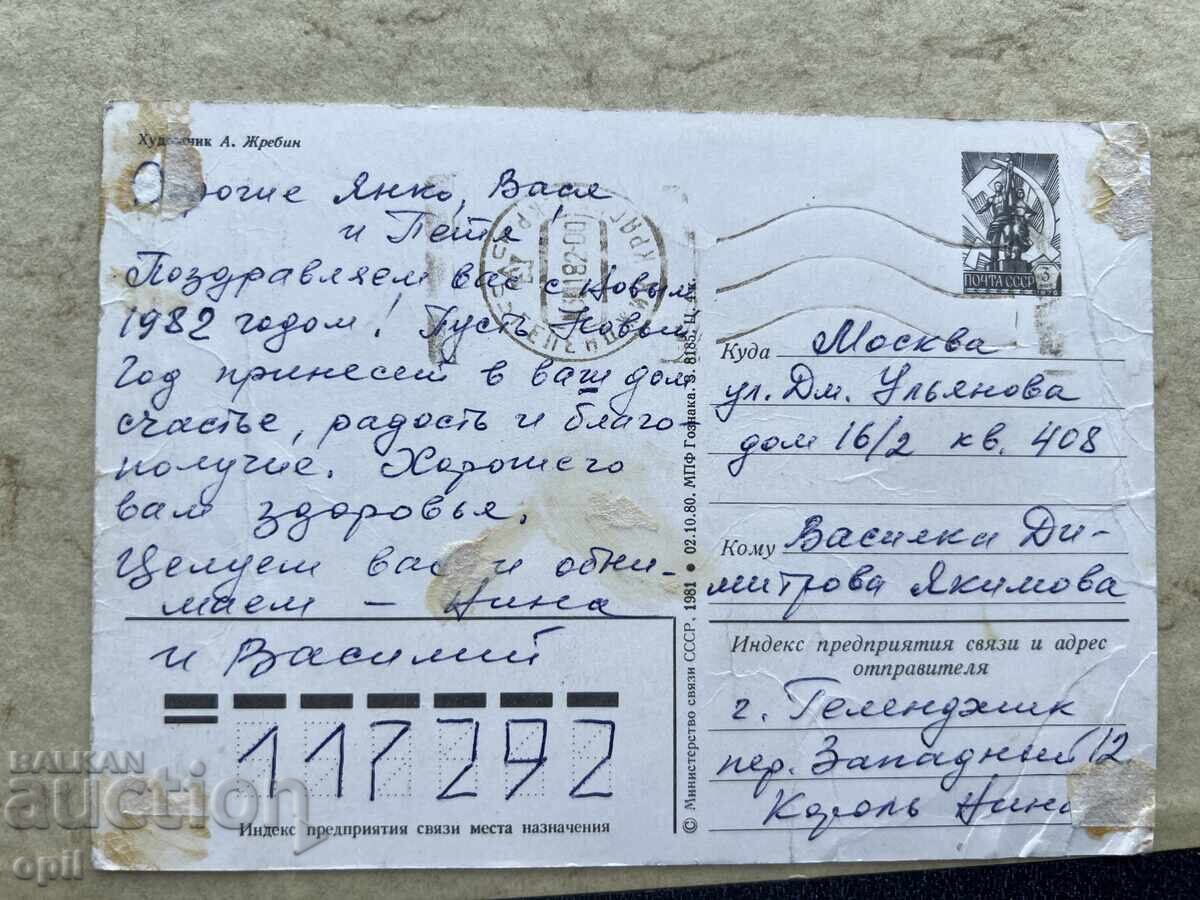 Художник А. Жребин
Дорогие Янко, Вася
и Петя!
Поздравляем вас с Новым
1982 годом! Пусть Новый
год принесет в ваш дом
счастье, радость и благо-
получие. Хорошего
вам здоровья.
Целуем вас и обни-
маем – Нина
и Василий
117292
Индекс предприятия связи места назначения
© Министерство связи СССР, 1981 • 02.10.80. МПФ Гознака. З. 8185. Ц. 4 к.
ПОЧТА СССР
3
Куда Москва
ул. Дм. Ульянова
дом 16/2 кв. 408
Кому Василки Ди-
митрова Якимова
Индекс предприятия связи и адрес
отправителя
г. Геленджик
пер. Западный 12
Король Нина
BALKAN
auction
opil